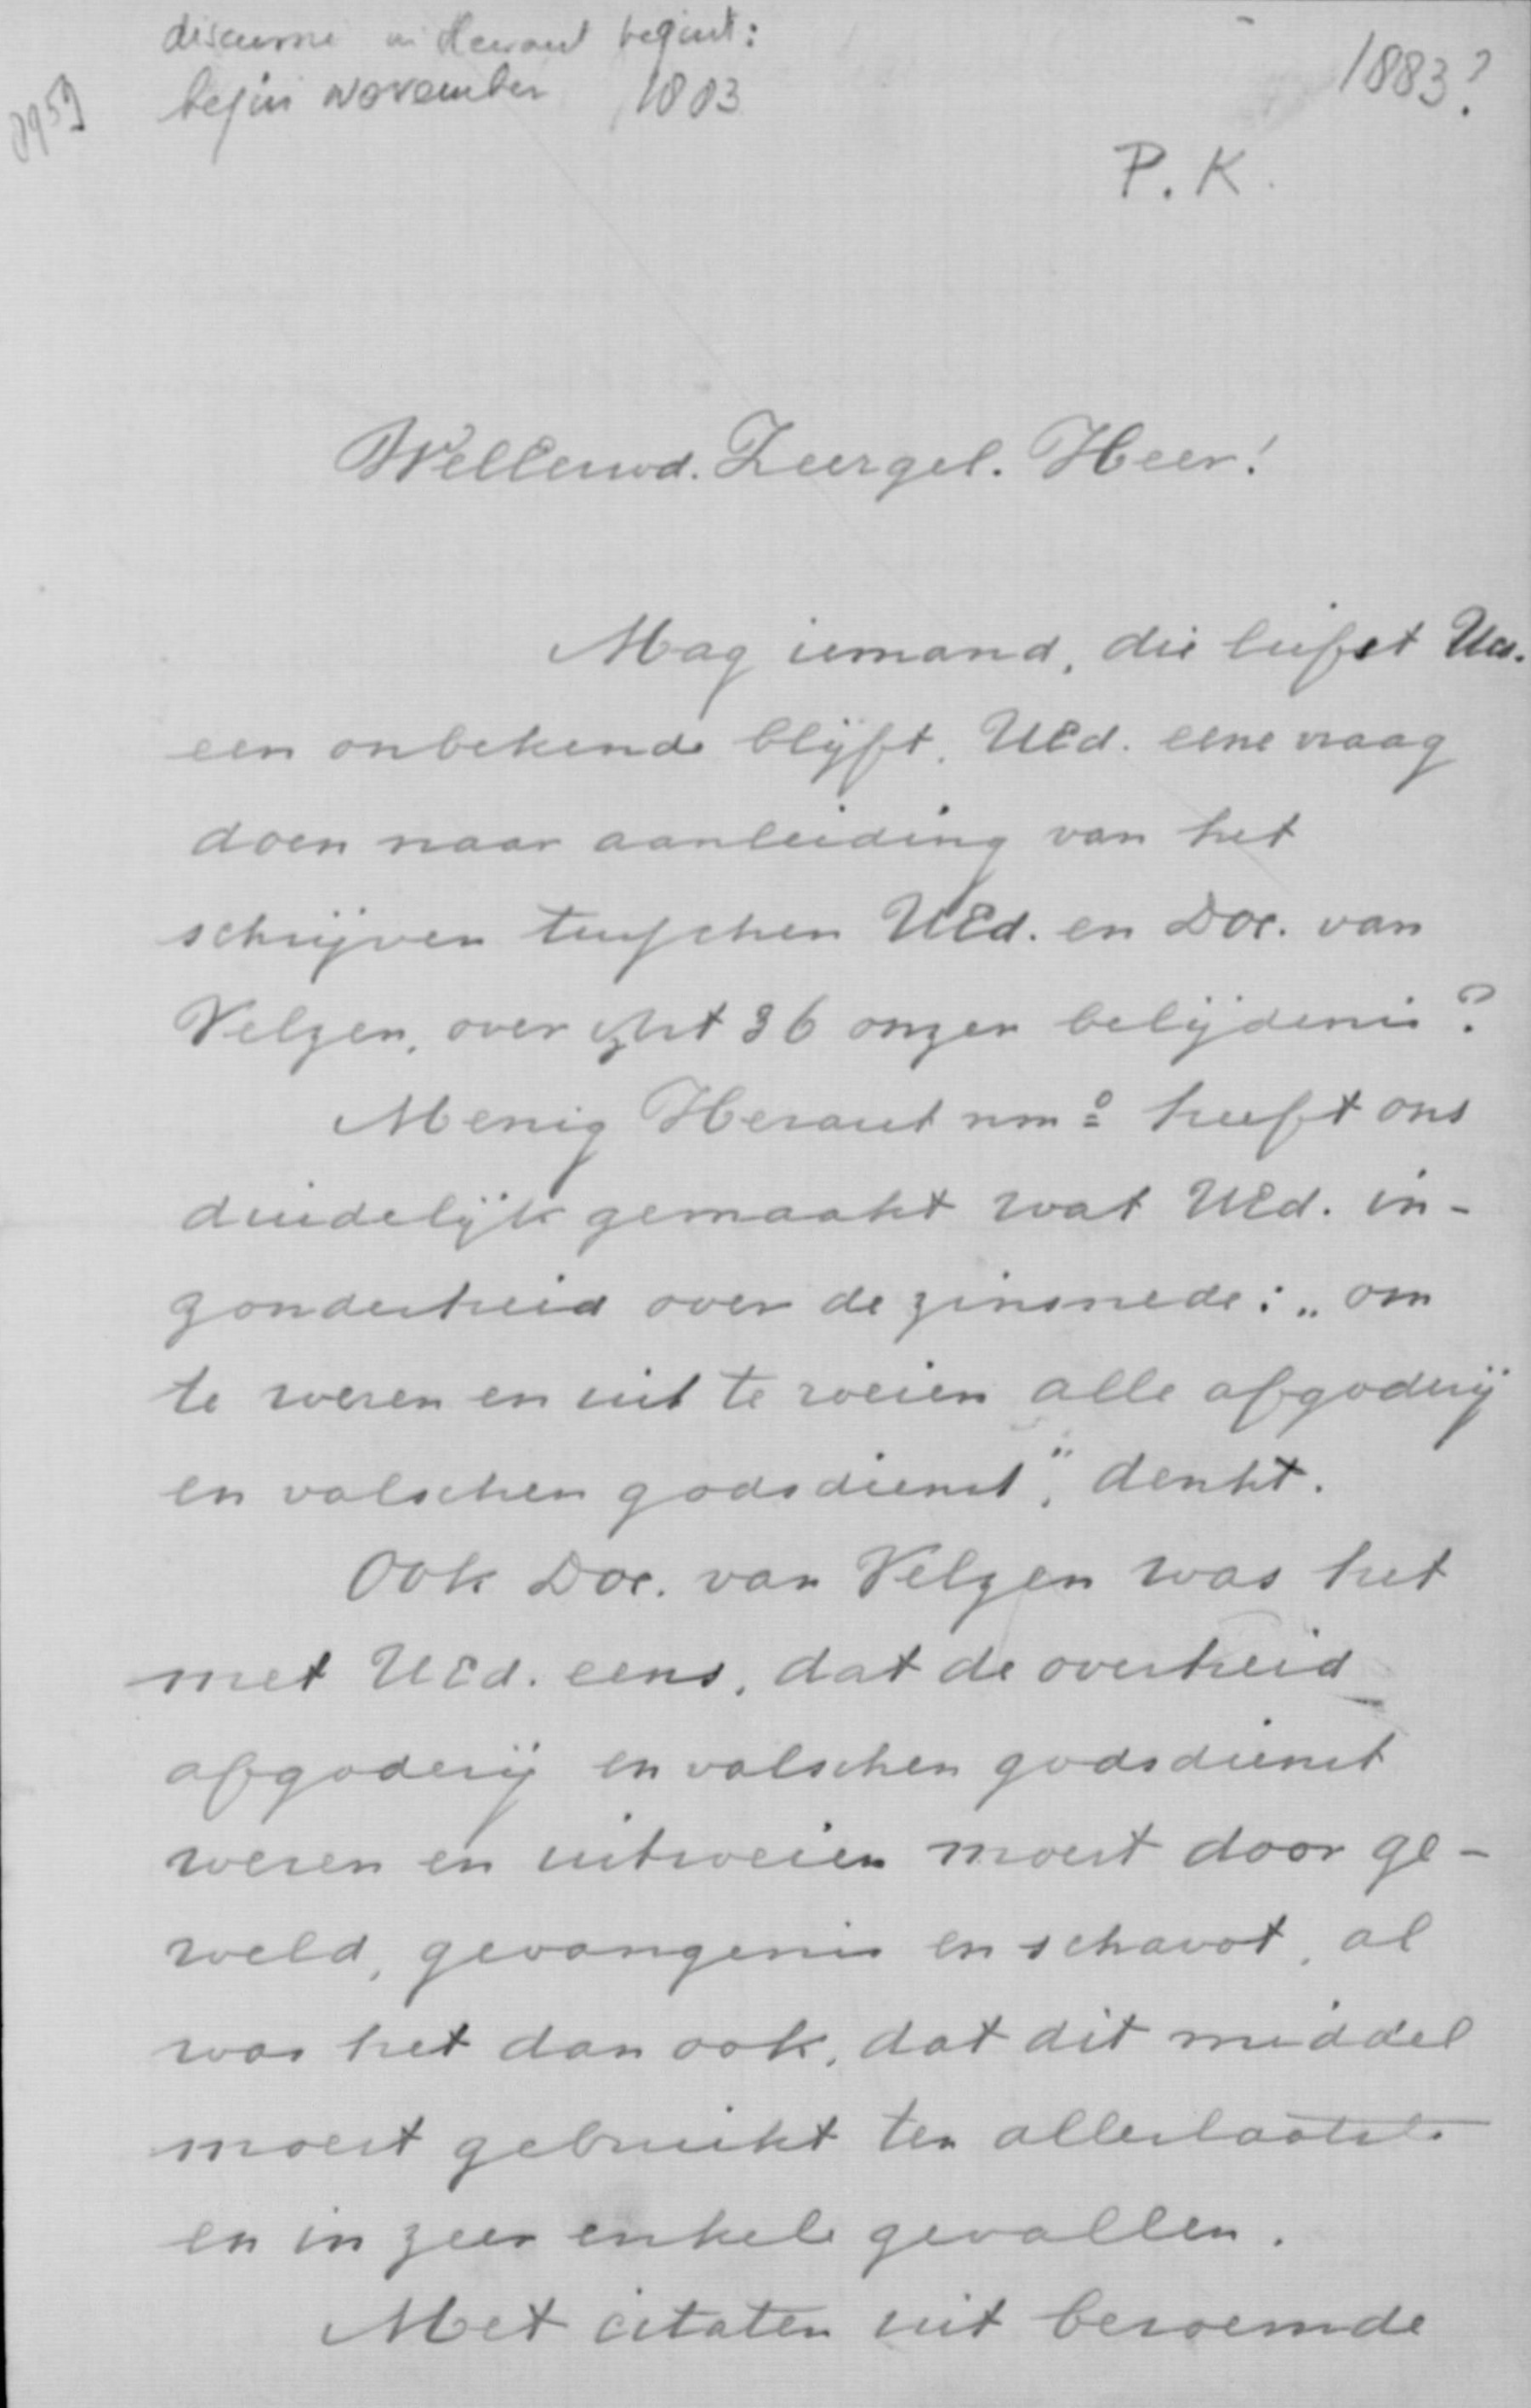 discussie in Heraut begint:
begin November 1883
1883?
P. K.
WelEerwd. Zeergel. Heer!
Mag iemand, die liefst UEd.
een onbekende blijft, UEd. eene vraag
doen naar aanleiding van het
schrijven tusschen UEd. en Doc. van
Velzen, over Art 36 onzer belijdenis?
Menig Heraut nmo heeft ons
duidelijk gemaakt wat UEd. in-
zonderheid over de zinsnede: „om
te weren en uit te roeien alle afgoderij
en valschen godsdienst", denkt.
Ook Doc. van Velzen was het
met UEd. eens, dat de overheid
afgoderij en valschen godsdienst
weren en uitroeien moest door ge-
weld, gevangenis en schavot, al
was het dan ook, dat dit middel
moest gebruikt ten allerlaatste
en in zeer enkele gevallen.
Met citaten uit beroemde